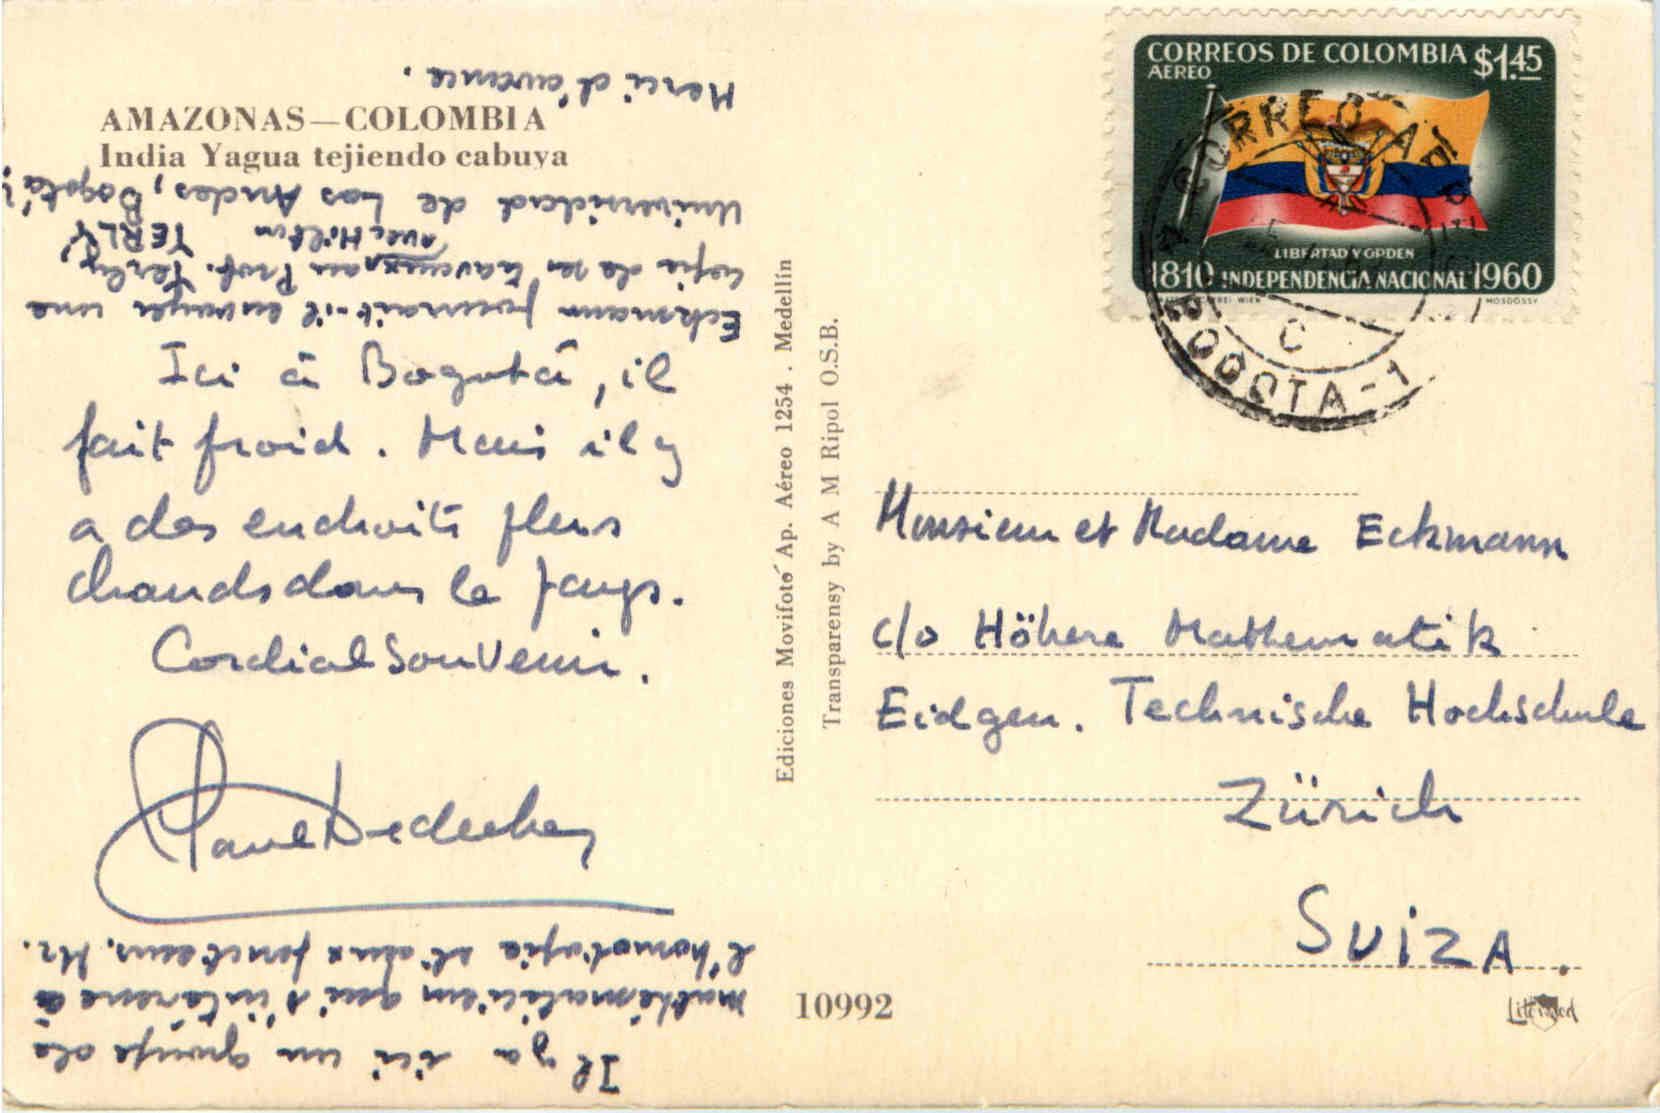 AMAZONAS—COLOMBIA
India Yagua tejiendo cabuya
Ici à Bogotá, il
fait froid. Mais il y
a des endroits plus
chauds dans le pays.
Cordial Souvenir.
Paul Dedecker
Il y a ici un groupe de
mathématiciens qui s'intéresse à
l'homotopie et aux foncteurs. Mr.
Eckmann pourrait-il envoyer une
copie de ses travaux au Prof. Yerly,
avec Hilton YERLY
Universidad de Los Andes, Bogotá?
Merci d'avance.
Ediciones Movifoto Ap. Aéreo 1254 . Medellín
Transparensy by A M Ripol O.S.B.
10992
CORREOS DE COLOMBIA $1.45
AEREO
LIBERTAD Y ORDEN
1810 INDEPENDENCIA NACIONAL 1960
MOSDOSSY
CORREO AE
C
BOGOTA-1
Monsieur et Madame Eckmann
c/o Höhere Mathematik
Eidgen. Technische Hochschule
Zürich
SUIZA.